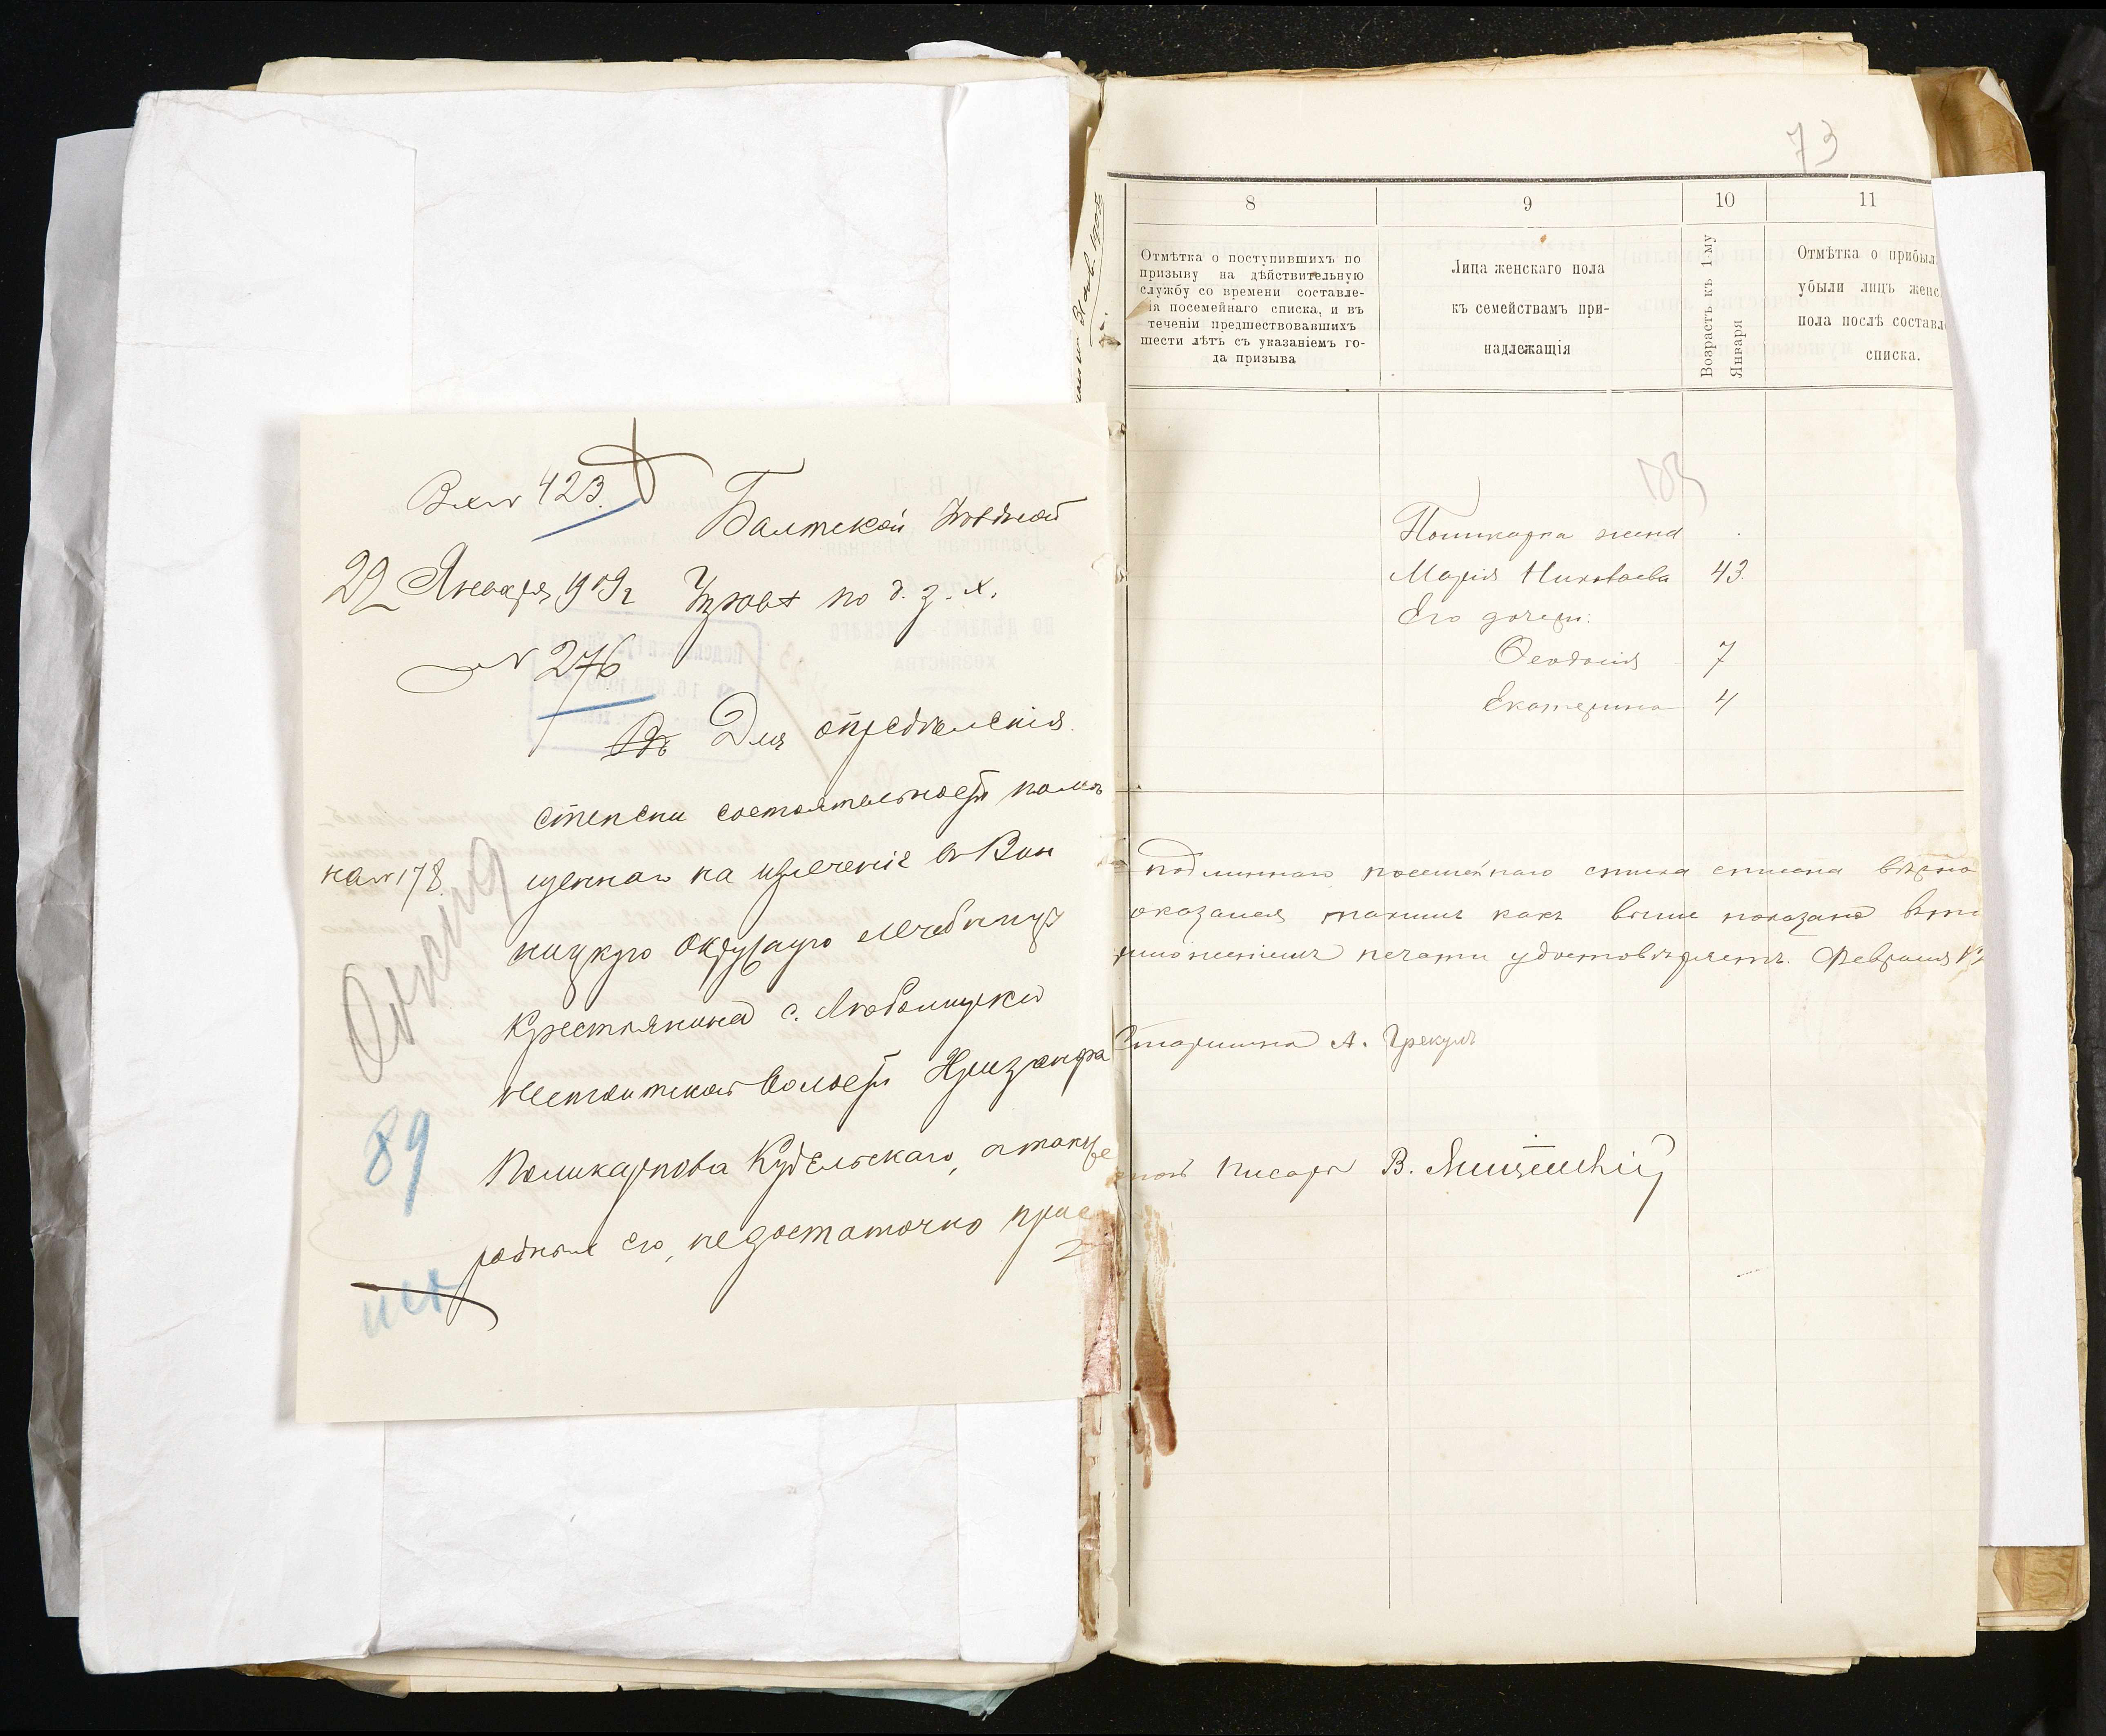 Вх № 423.
Балтской Уѣздной
29 Января 1909 г
Управѣ по д. з. х.
№ 276
Для опредѣленія
степени состоятельности помѣ
на № 178.
щеннаго на излеченіе въ Вин
ницкую Окружную лечебницу
крестьянина с.
волости Хризанфа
89
Поликарпова Кудельскаго, а также
родныхъ его, недостаточно
73
8
9
10
11
Отмѣтка о поступившихъ по
призыву на дѣйствительную
службу со времени составле-
ія посемейнаго списка, и въ
теченіи предшествовавшихъ
шести лѣтъ съ указаніемъ го-
да призыва
Лица женскаго пола
къ семействамъ при-
надлежащія
Возрастъ къ 1-му
Января
Отмѣтка о прибыл
убыли лицъ женс
пола послѣ составл
списка.
жена
Марія Николаева 43.
Его дочери:
Ѳеодосія 7
Екатерина 4
подлиннаго посемейнаго списка списана вѣрно
оказался такимъ какъ выше показано въ
печати удостовѣряетъ. Февраля
Старшина А. Грекулъ
Писарь В.